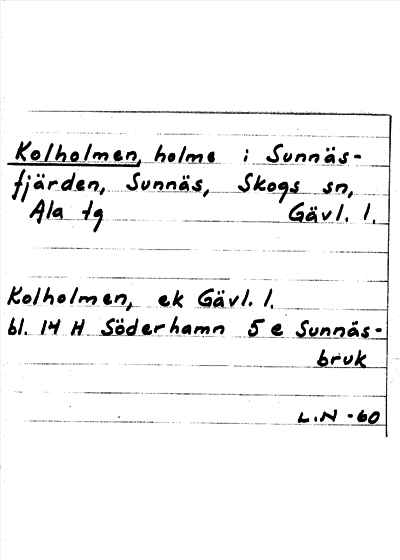 Kolholmen, holme i Sunnäs-
fjärden, Sunnäs, Skogs sn,
Ala tg Gävl. l.
Kolholmen, ek Gävl. l.
bl. 14 H Söderhamn 5 e Sunnäs-
bruk
L.N -60